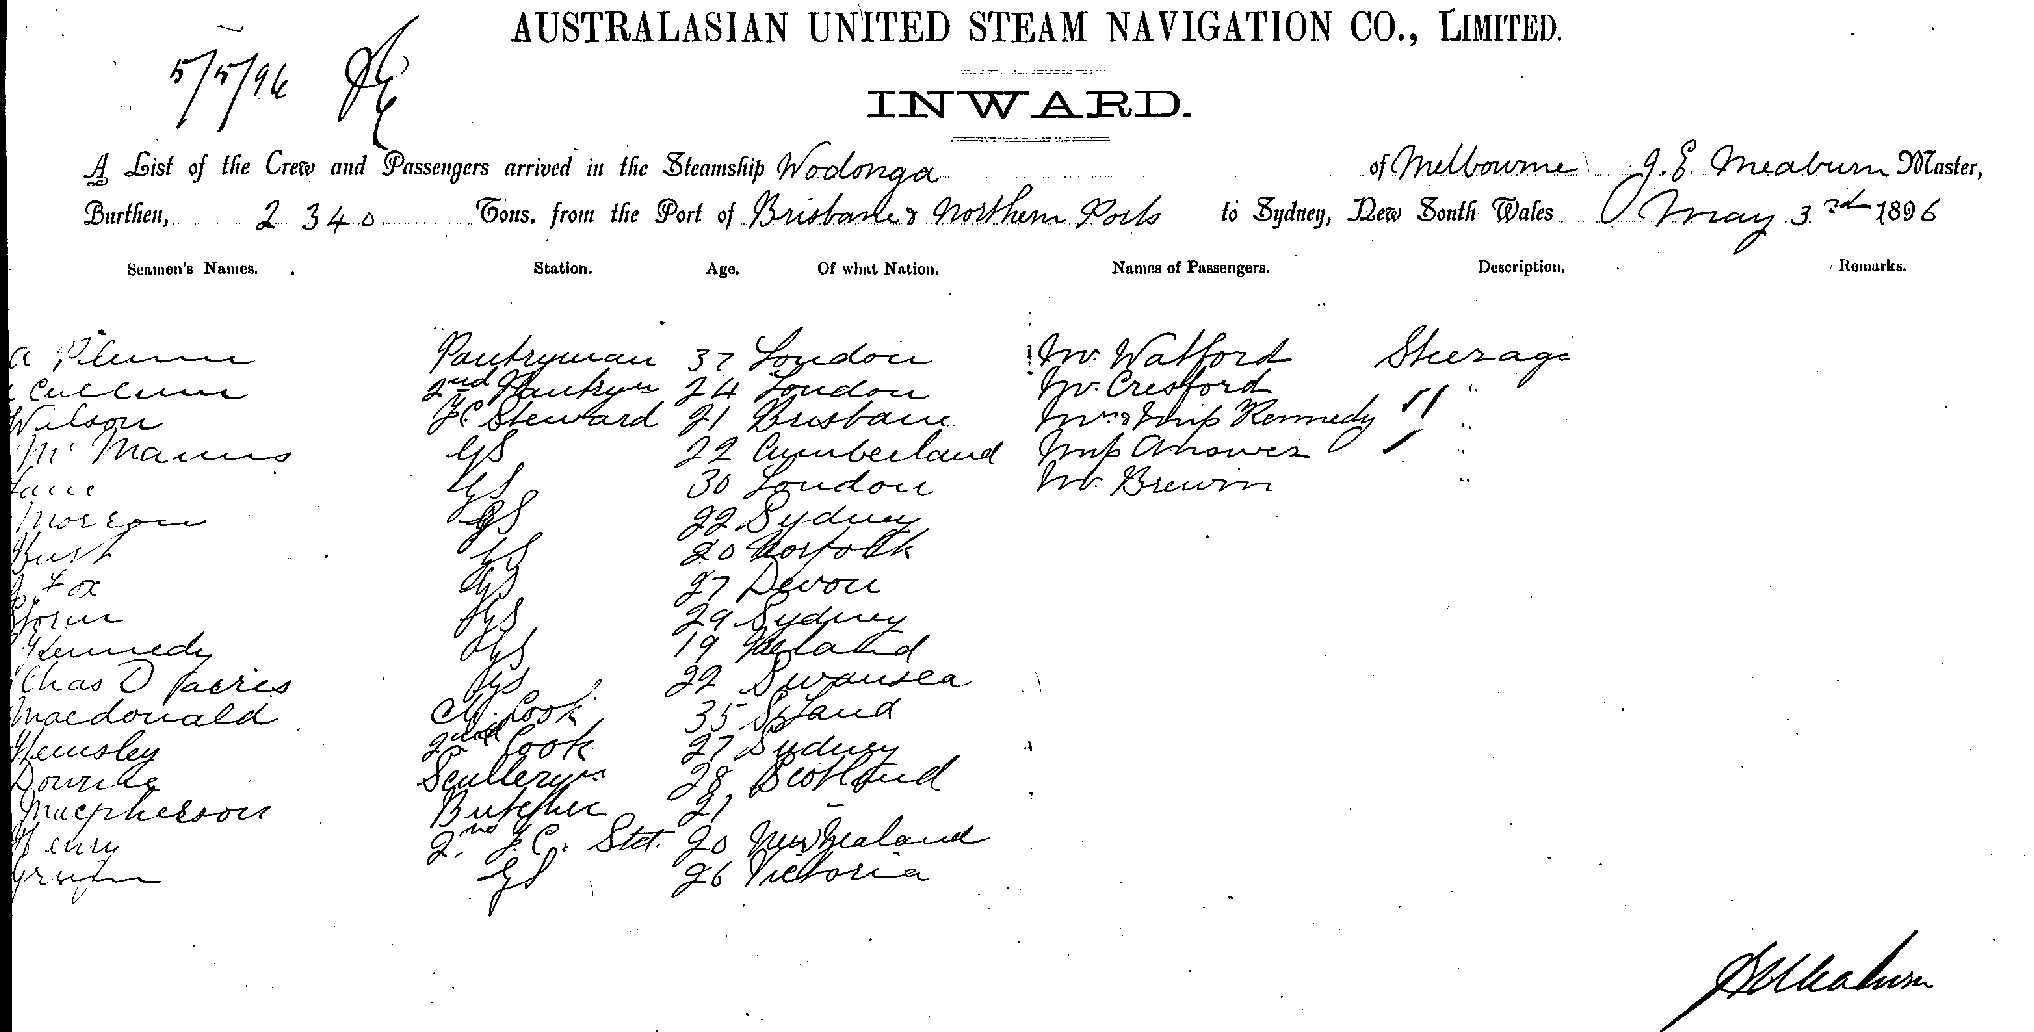 AUSTRALASIAN UNITED STEAM NAVIGATION CO., LIMITED.
5/5/96
INWARD.
A List of the Crew and Passengers arrived in the Steamship Wodonga of Melbourne J. E. Meaburn Master,
Burthen, 2340 Tons. from the Port of Brisbane & Northern Ports to Sydney, New South Wales May 3rd 1896
Seamen's Names. Station. Age. Of what Nation. Names of Passengers. Description. Remarks.
Pantryman 37 London Mr. Watford Steerage
Cullum 2nd 24 London Mr. Cresford "
Wilson FC Steward 21 Brisbane Kennedy "
McManus GS 22 Cumberland "
Lane GS 30 London Mr. Brewin "
GS 22 Sydney
GS 20 Norfolk
Fox GS 27 Devon
GS 29 Sydney
Kennedy GS 19 Ireland
Chas D GS 22 Swansea
Macdonald Ch. Cook 35
Hemsley 2nd Cook 27 Sydney
28 Scotland
Macpherson Butcher 21 "
Henry 2nd F.C. Std. 20 New Zealand
GS 26 Victoria
J E Meaburn